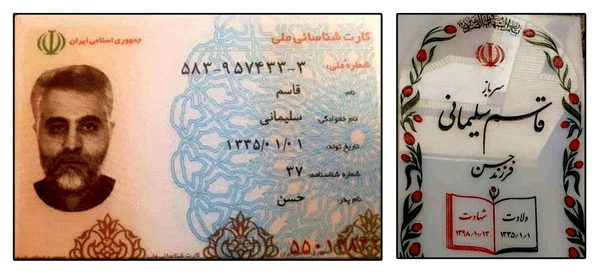 جمهوری اسلامی ایران
کارت شناسائی ملی
شماره ملی:
۵۸۳-۹۵۷۴۳۳-۳
نام:
قاسم
نام خانوادگی:
سلیمانی
تاریخ تولد:
۱۳۳۵/۰۱/۰۱
شماره شناسنامه:
۳۷
نام پدر:
حسن
سرباز
قاسم سلیمانی
فرزند حسن
ولادت
۱۳۳۵/۱/۱
شهادت
۱۳۹۸/۱۰/۱۳